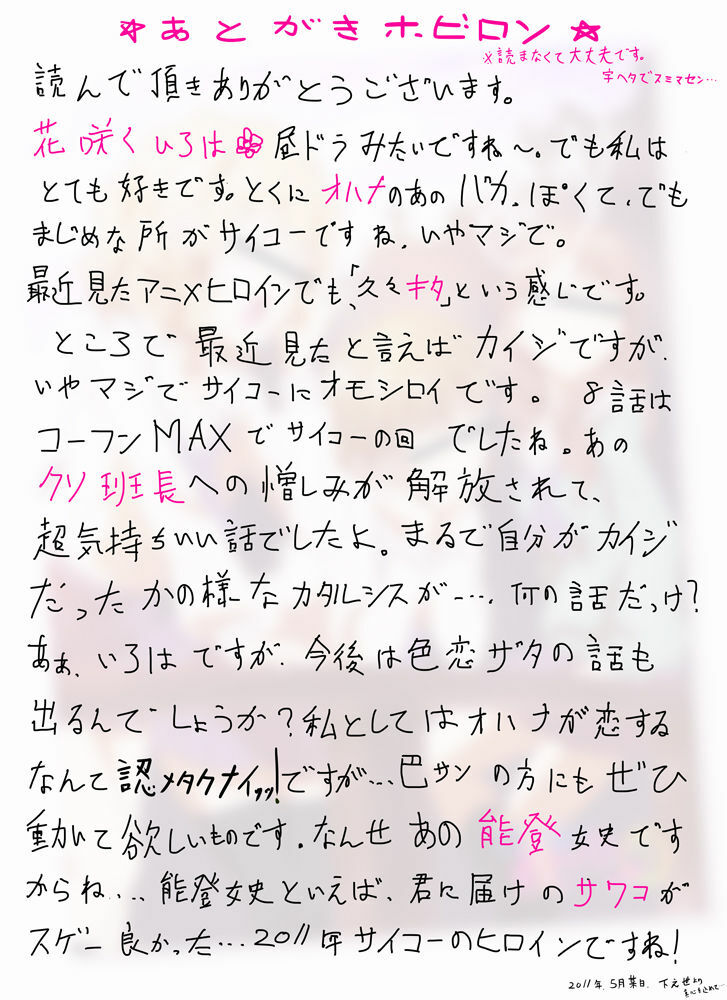 ☆あとがきホビロン☆
※読まなくて大丈夫です。
字ヘタでスミマセン…
読んで頂きありがとうございます。
花咲くいろは 昼ドラみたいですね〜。でも私は
とても好きです。とくにオハナのあのバカっぽくて、でも
まじめな所がサイコーですね、いやマジで。
最近見たアニメヒロインでも、「久々キタ」という感じです。
ところで最近見たと言えばカイジですが、
いやマジでサイコーにオモシロイです。 8話は
コーフンMAXでサイコーの回でしたね。あの
クソ班長への憎しみが解放されて、
超気持ちいい話でしたよ。まるで自分がカイジ
だったかの様なカタルシスが…、何の話だっけ?
あぁ、いろはですが、今後は色恋ザタの話も
出るんでしょうか?私としてはオハナが恋する
なんて認メタクナイッッ!ですが…巴サンの方にもぜひ
動いて欲しいものです。なんせあの能登女史です
からね…。能登女史といえば、君に届けのサワコが
スゲー良かった…2011年サイコーのヒロインですね!
2011年、5月某日、